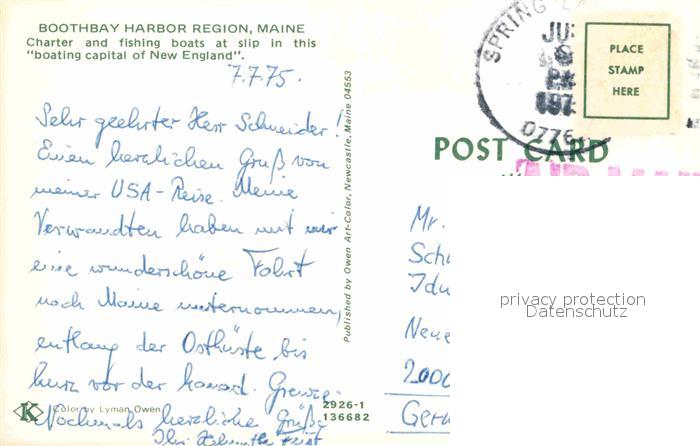 BOOTHBAY HARBOR REGION, MAINE
Charter and fishing boats at slip in this
"boating capital of New England".
7.7.75.
Sehr geehrter Herr Schneider!
Einen herzlichen Gruß von
meiner USA-Reise. Meine
Verwandten haben mit mir
eine wunderschöne Fahrt
nach Maine unternommen,
entlang der Ostküste bis
kurz vor der kanad. Grenze.
Nochmals herzliche Grüße
Ihr
K
Color by Lyman Owen
2926-1
136682
Published by Owen Art-Color, Newcastle, Maine 04553
SPRING LA
JU
PM
197
0776
PLACE
STAMP
HERE
POST CARD
Mr.
Sch
Idu
Neue
2000
Germ
privacy protection
Datenschutz